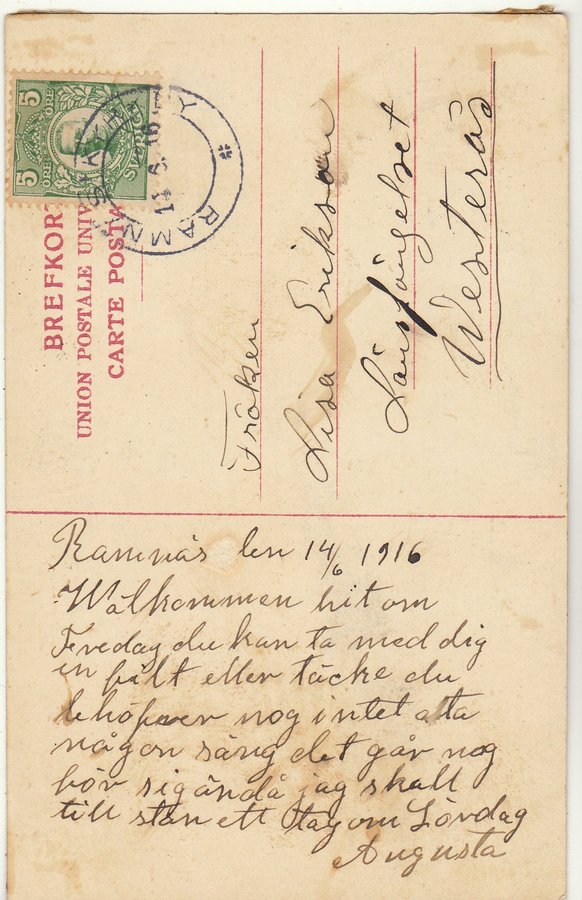 BREFKORT
UNION POSTALE UNIV
CARTE POSTA
5 ÖRE
5 ÖRE
SVERIGE
RAMN
14 6 16
Fröken
Lisa Erikson
Länsfängelset
Westerås
Ramnäs den 14/6 1916
Wälkommen hit om
Fredag du kan ta med dig
en filt eller täcke du
behöfver nog intet alta
någon säng det går nog
för sig ändå jag skall
till stan ett tag om Lördag
Augusta